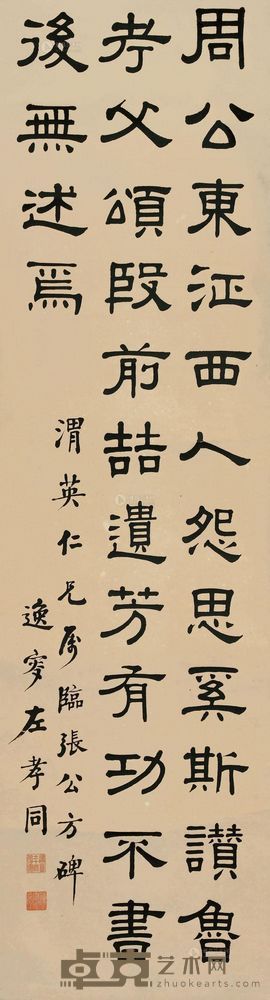 周公東征西人怨思奚斯讚魯
考父頌殷前喆遺芳有功不書
後無述焉
渭英仁兄屬臨張公方碑
逸叟左孝同
卓克艺术网
www.zhuokearts.com